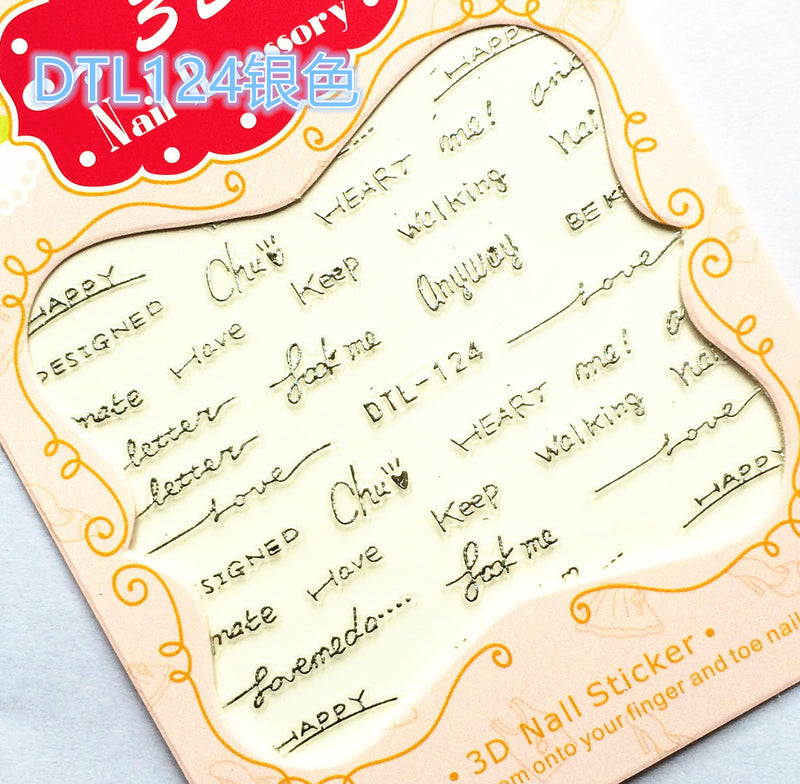 3D
DTL124银色
Nail Accessory
HAPPY
HEART me! and
Chu walking nai
HAPPY Keep Anyway BE K
DESIGNED Have look me love
mate DTL-124
letter HEART me! a
letter walking nai
love Chu Keep love
SIGNED HAPPY
mate Have look me
lovemedo....
HAPPY
3D Nall Sticker
om onto your finger and toe nail